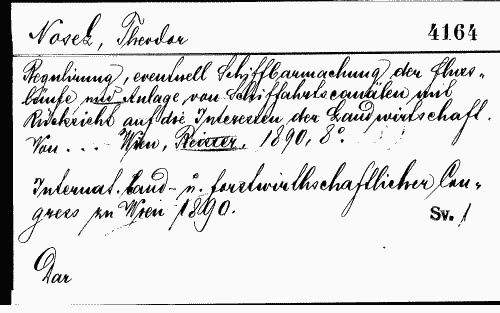 Nosek, Theodor 4164
Regulirung, eventuell Schiffbarmachung der Fluss-
läufe und Anlage von Schiffahrtscanälen mit
Rücksicht auf die Interessen der Landwirtschaft.
Von ... Wien, Reisser, 1890, 8°.
Internat. Land- u. forstwirthschaftlicher Con-
gress zu Wien 1890.
Sv. 1
Dar